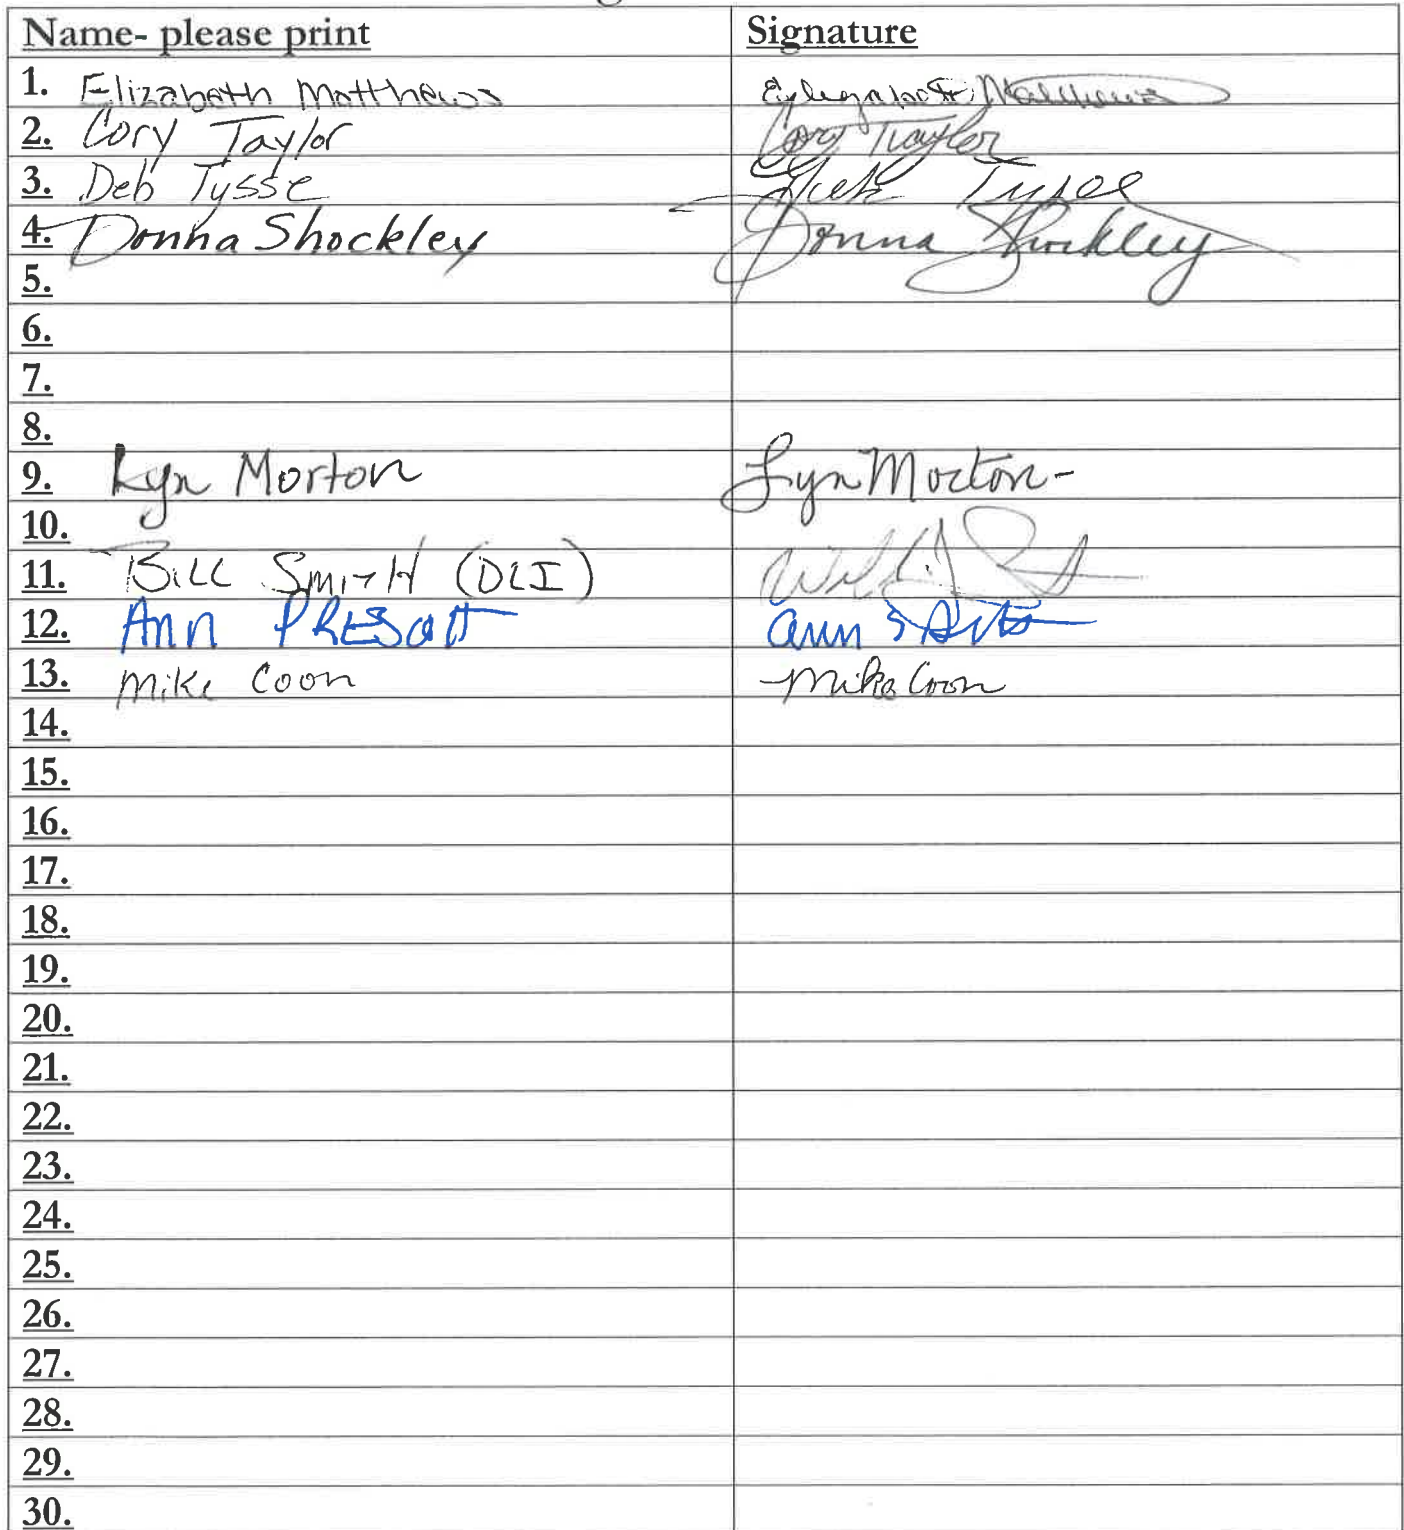 Name- please print Signature
1. Elizabeth Matthews Elizabeth Matthews
2. Cory Taylor Cory Taylor
3. Deb Tysse Deb Tysse
4. Donna Shockley Donna Shockley
5.
6.
7.
8.
9. Lyn Morton Lyn Morton
10.
11. Bill Smith (DLI)
12. Ann PRESCott Ann
13. Mike Coon Mike Coon
14.
15.
16.
17.
18.
19.
20.
21.
22.
23.
24.
25.
26.
27.
28.
29.
30.